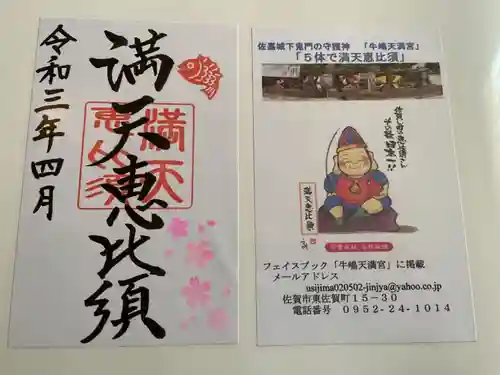 令和三年四月
満天恵比須
満天
恵比須
佐嘉城下鬼門の守護神 「牛嶋天満宮」
「5体で満天恵比須」
満天恵比須
フェイスブック「牛嶋天満宮」に掲載
メールアドレス
usijima020502-jinjya@yahoo.co.jp
佐賀市東佐賀町15-30
電話番号 0952-24-1014